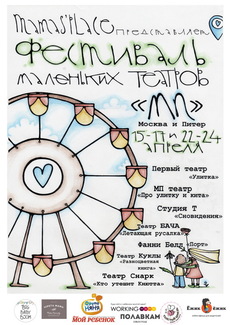 MAMAS'PLACE ПРЕДСТАВЛЯЕТ
ФЕСТИВАЛЬ
МАЛЕНЬКИХ ТЕАТРОВ
«МП»
Москва и Питер
15-17 и 22-24
АПРЕЛЯ
Первый театр
«Улитка»
МП театр
«Про улитку и кита»
Студия Т
«Сновидения»
Театр БАЧА
«Летающая русалка»
Фанни Белл «Порт»
Театр Куклы
«Разноцветная
книга»
Театр Снарк
«Кто утешит Кнютта»
Мой ребенок
WORKING
ПОЛАВКАМ
Ёжик Ёжик